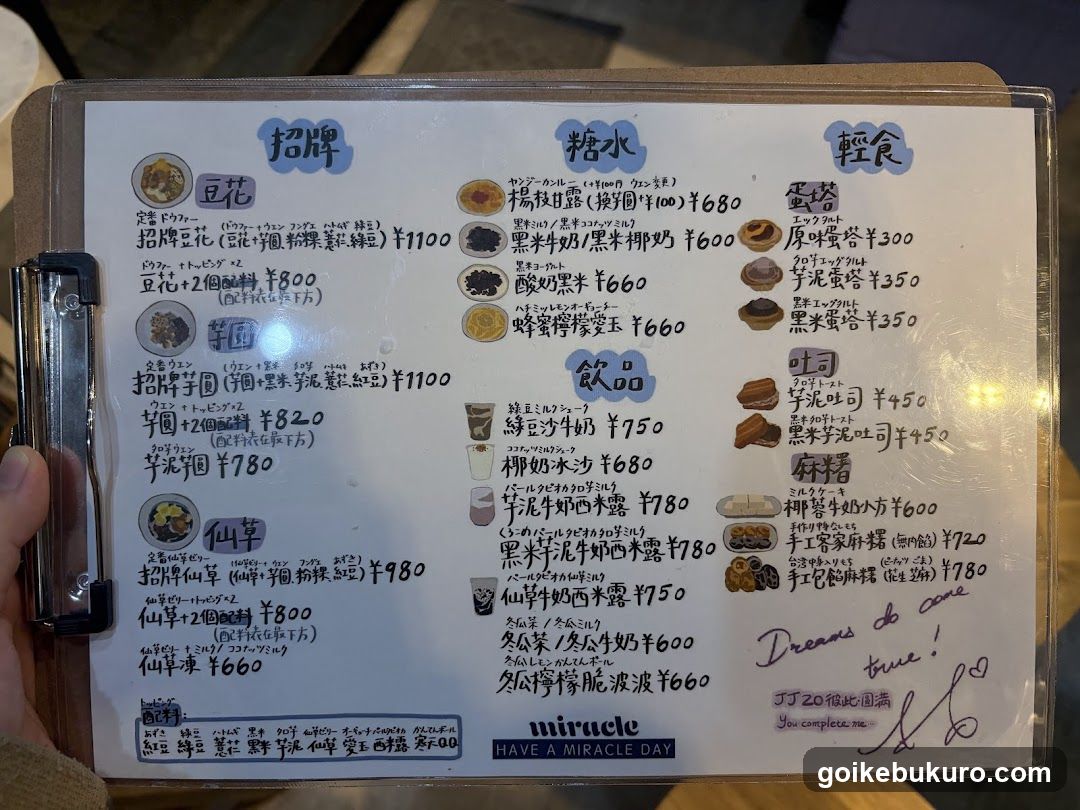 招牌
豆花
定番ドウファー
(ドウファー+ウェン フングエ ハトムギ 緑豆)
招牌豆花(豆花+芋圓,粉粿,薏芢,綠豆) ¥1100
ドウファー+トッピング×2
豆花+2個配料 ¥800
(配料表在最下方)
芋圓
定番ウエン
(ウエン+黒米 タロ芋 ハトムギ あずき)
招牌芋圓(芋圓+黑米,芋泥,薏芢,紅豆) ¥1100
ウエン+トッピング×2
芋圓+2個配料 ¥820
(配料表在最下方)
タロ芋ウエン
芋泥芋圓 ¥780
仙草
定番仙草ゼリー
招牌仙草(仙草+芋圓,粉粿,紅豆) ¥980
仙草ゼリー+トッピング×2
仙草+2個配料 ¥800
(配料表在最下方)
仙草ゼリー+ミルク/ココナッツミルク
仙草凍 ¥660
トッピング
配料:
あずき 緑豆 ハトムギ 黒米 タロ芋 仙草ゼリー オーギョーチ パールタピオカ かんてんボール
紅豆 綠豆 薏芢 黑米 芋泥 仙草 愛玉 西米露 寒天QQ
糖水
ヤンジーカンルー (+¥100円 ウエン変更)
楊枝甘露(換芋圓+¥100) ¥680
黒米ミルク/黒米ココナッツミルク
黑米牛奶/黑米椰奶 ¥600
黒米ヨーグルト
酸奶黑米 ¥660
ハチミツレモンオーギョーチー
蜂蜜檸檬愛玉 ¥660
飲品
緑豆ミルクシェーク
綠豆沙牛奶 ¥750
ココナッツミルクシェーク
椰奶冰沙 ¥680
パールタピオカタロ芋ミルク
芋泥牛奶西米露 ¥780
くろこめパールタピオカタロ芋ミルク
黑米芋泥牛奶西米露 ¥780
パールタピオカ仙草ミルク
仙草牛奶西米露 ¥750
冬瓜茶/冬瓜ミルク
冬瓜茶/冬瓜牛奶 ¥600
冬瓜レモンかんてんボール
冬瓜檸檬脆波波 ¥660
miracle
HAVE A MIRACLE DAY
輕食
蛋塔
エッグタルト
原味蛋塔 ¥300
タロ芋エッグタルト
芋泥蛋塔 ¥350
黒米エッグタルト
黑米蛋塔 ¥350
吐司
タロ芋トースト
芋泥吐司 ¥450
黒米タロ芋トースト
黑米芋泥吐司 ¥450
麻糬
ミルクケーキ
椰蓉牛奶小方 ¥600
手作り中身なしもち
手工客家麻糬(無内餡) ¥720
台湾中身入りもち (ピーナッツ ごま)
手工包餡麻糬(花生 芝麻) ¥780
Dreams do come
true!
JJ20彼此圓滿
You complete me
goikebukuro.com